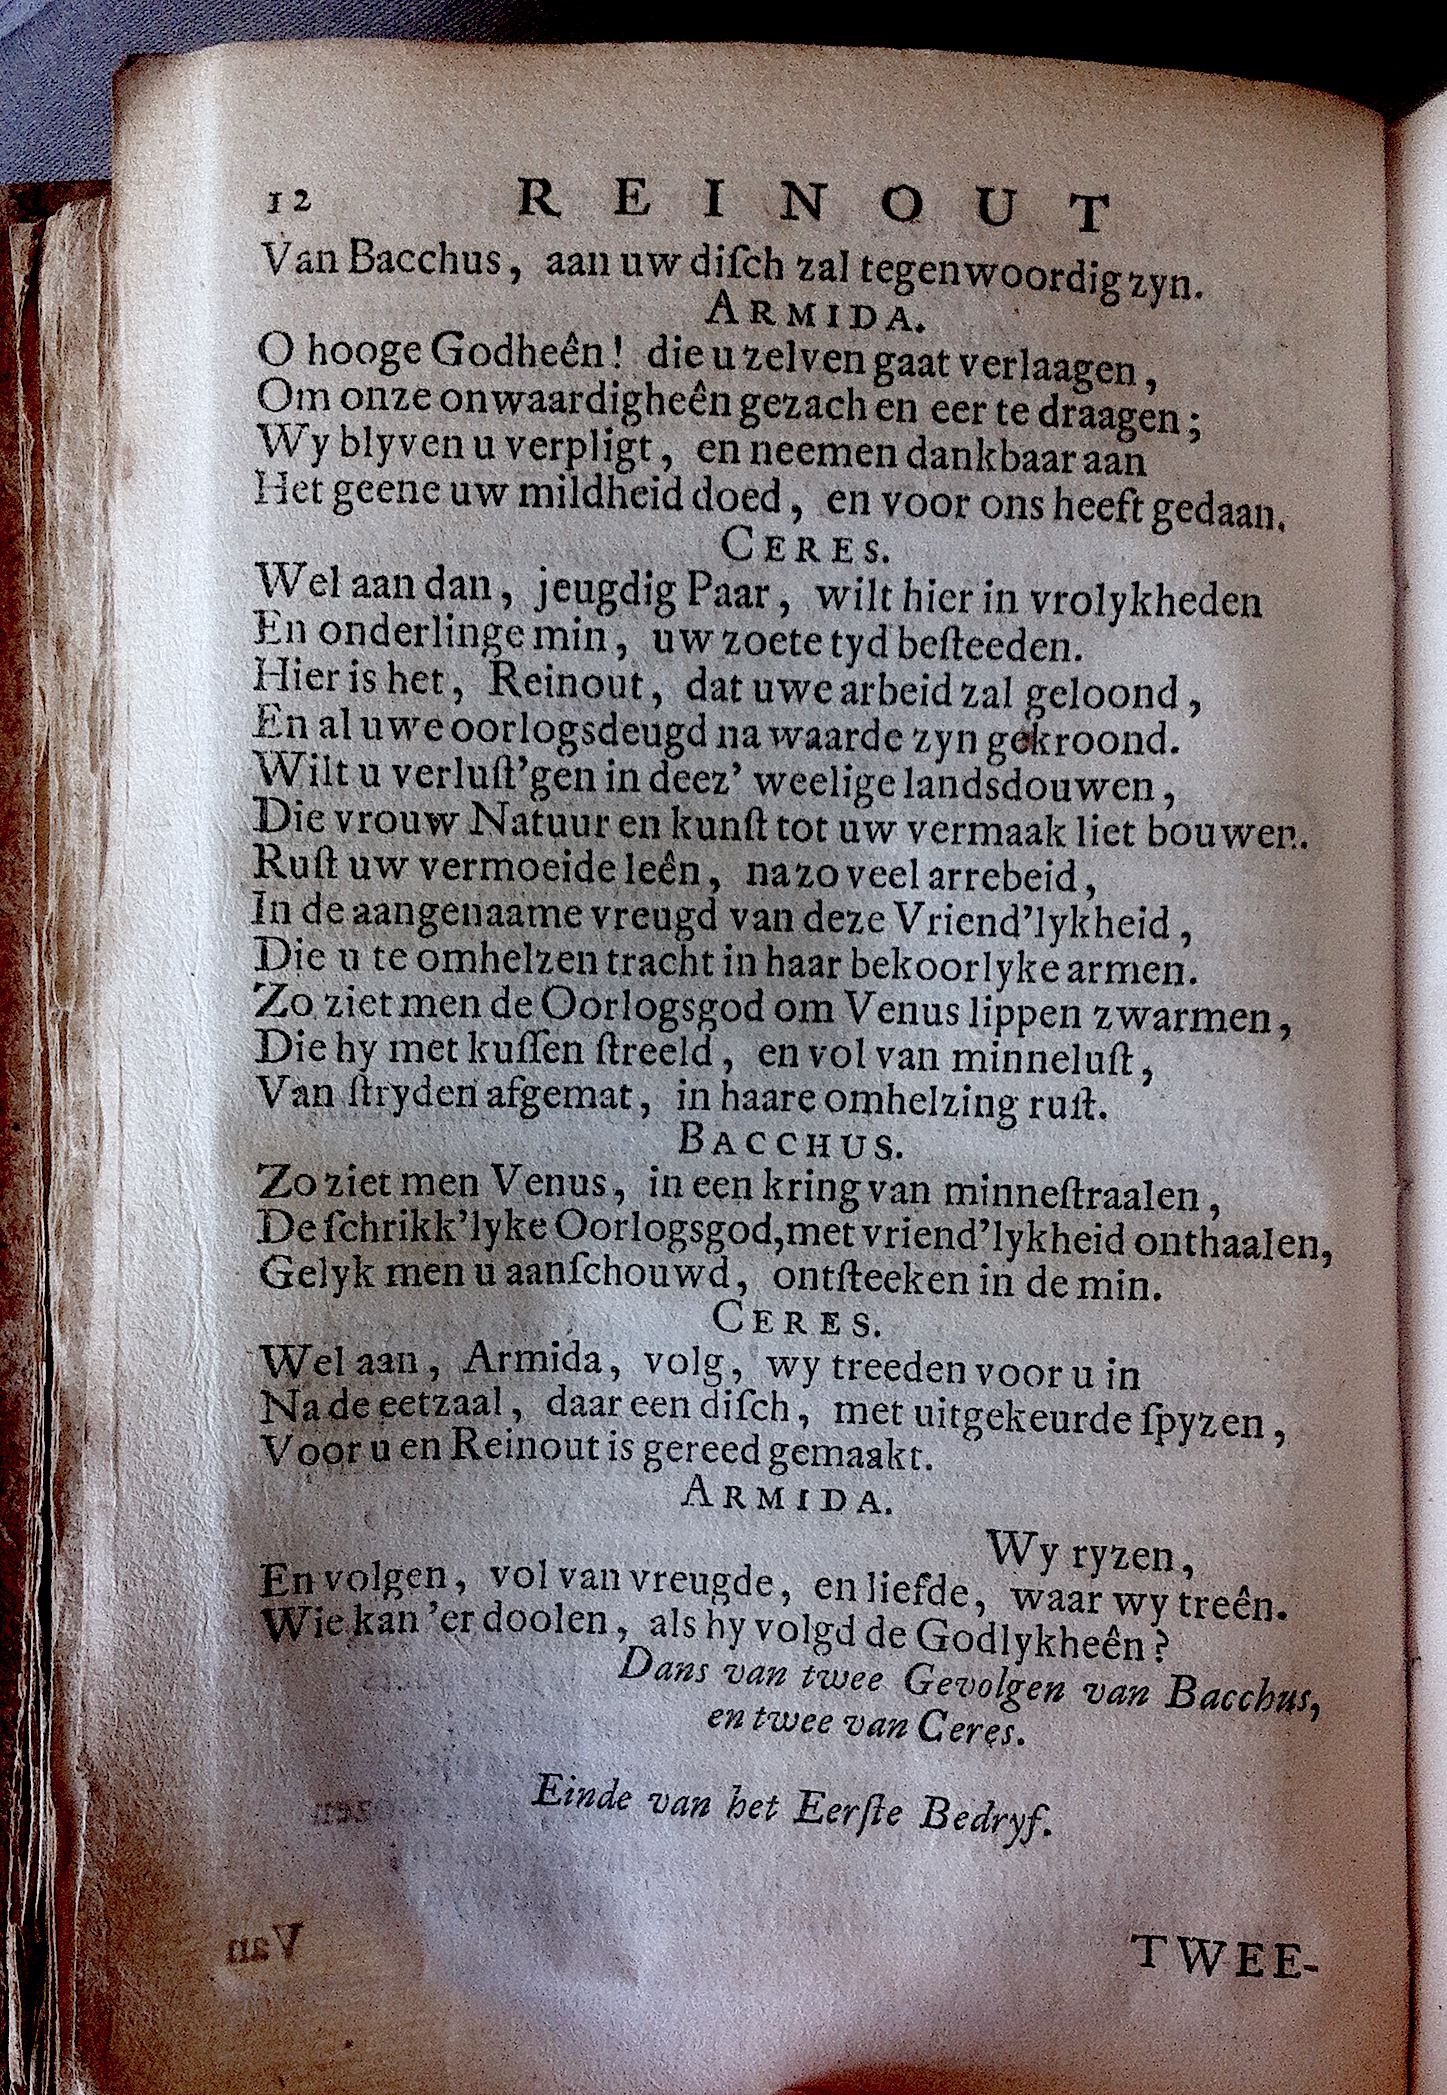 12 REINOUT
Van Bacchus, aan uw diſch zal tegenwoordig zyn.
ARMIDA.
O hooge Godheên! die u zelven gaat verlaagen,
Om onze onwaardigheên gezach en eer te draagen;
Wy blyven u verpligt, en neemen dankbaar aan
Het geene uw mildheid doed, en voor ons heeft gedaan.
CERES.
Wel aan dan, jeugdig Paar, wilt hier in vrolykheden
En onderlinge min, uw zoete tyd beſteeden.
Hier is het, Reinout, dat uwe arbeid zal geloond,
En al uwe oorlogsdeugd na waarde zyn gekroond.
Wilt u verluſt'gen in deez' weelige landsdouwen,
Die vrouw Natuur en kunſt tot uw vermaak liet bouwen.
Ruſt uw vermoeide leên, na zo veel arrebeid,
In de aangenaame vreugd van deze Vriend'lykheid,
Die u te omhelzen tracht in haar bekoorlyke armen.
Zo ziet men de Oorlogsgod om Venus lippen zwarmen,
Die hy met kuſſen ſtreeld, en vol van minneluſt,
Van ſtryden afgemat, in haare omhelzing ruſt.
BACCHUS.
Zo ziet men Venus, in een kring van minneſtraalen,
De ſchrikk'lyke Oorlogsgod, met vriend'lykheid onthaalen,
Gelyk men u aanſchouwd, ontſteeken in de min.
CERES.
Wel aan, Armida, volg, wy treeden voor u in
Na de eetzaal, daar een diſch, met uitgekeurde ſpyzen,
Voor u en Reinout is gereed gemaakt.
ARMIDA.
Wy ryzen,
En volgen, vol van vreugde, en liefde, waar wy treên.
Wie kan 'er doolen, als hy volgd de Godlykheên?
Dans van twee Gevolgen van Bacchus,
en twee van Ceres.
Einde van het Eerſte Bedryf.
TWEE-